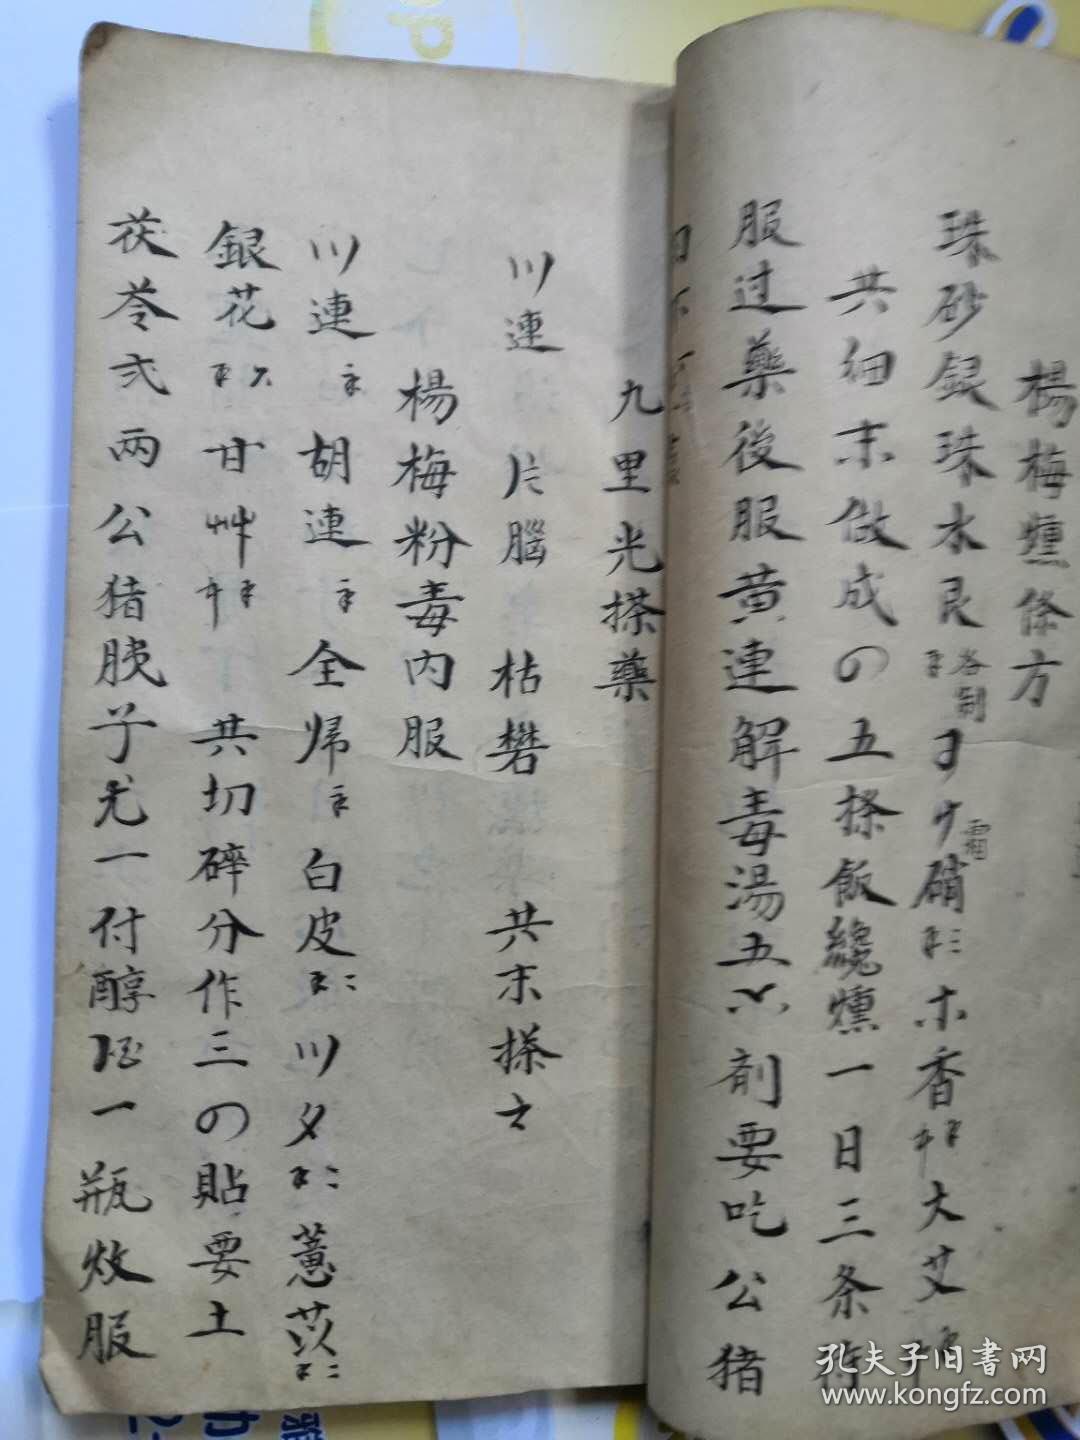 楊梅燻條方
珠砂銀珠水艮各制
霜硝木香大艾
共细末做成の五搽飯纔燻一日三条
服过藥後服黄連解毒湯五六剂要吃公猪
九里光搽藥
川連 片腦 枯礬 共末搽之
楊梅粉毒内服
川連 胡連 全帰 白皮 川夕 薏苡
銀花 甘艸 共切碎分作三の貼要土
茯苓弍两公猪胰子尤一付醇酒一瓶炆服
孔夫子旧书网
www.kongfz.com